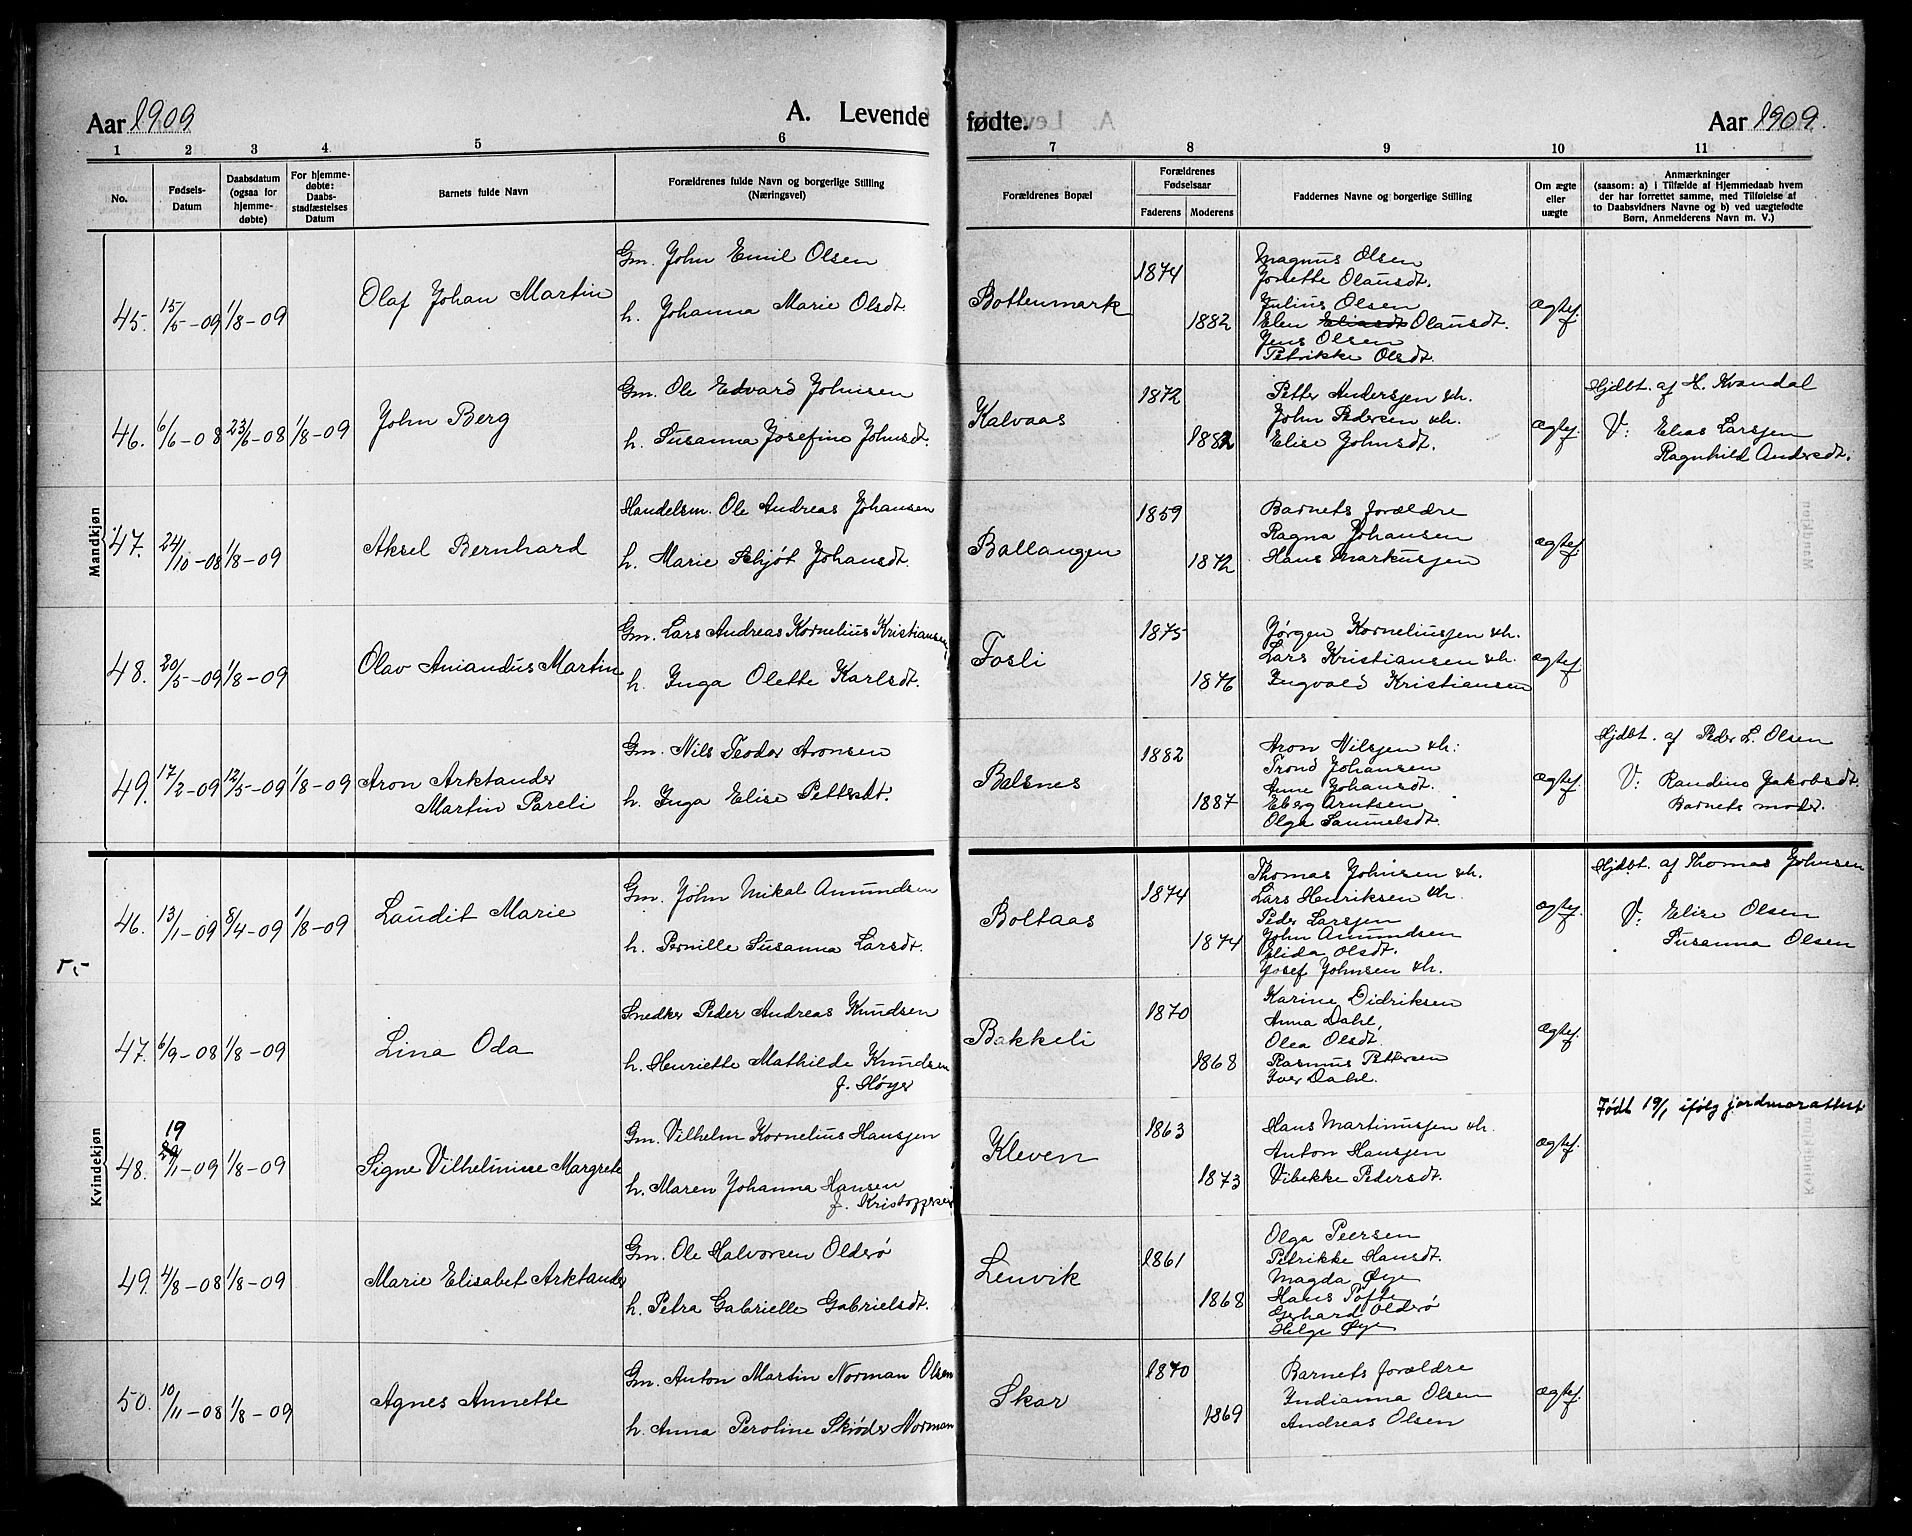 Aar 1909
A. Levende
fødte.
Aar 1909.
1 2 3 4 5 6 7 8 9 10 11
No.
Fødsels-
Datum
Daabsdatum
(ogsaa for
hjemme-
døbte)
For hjemme-
døbte:
Daabs-
stadfæstelses
Datum
Barnets fulde Navn
Forældrenes fulde Navn og borgerlige Stilling
(Næringsvei)
Forældrenes Bopæl
Forældrenes
Fødselsaar
Faderens Moderens
Faddernes Navne og borgerlige Stilling
Om ægte
eller
uægte
Anmærkninger
(saasom: a) i Tilfælde af Hjemmedaab hvem
der har forrettet samme, med Tilføielse af
to Daabsvidners Navne og b) ved uægtefødte
Børn, Anmelderens Navn m. V.)
Mandkjøn
45. 15/5-09 1/8-09
Olaf Johan Martin
Gm. John Emil Olsen
h. Johanna Marie Olsdt.
Bottenmark
1874
1882
Magnus Olsen
Jonette Olausdt.
Julius Olsen
Elen Eliasdt Olausdt.
Jens Olsen
Petrikke Olsdt.
ægtef.
46. 6/6-08 23/6-08 1/8-09
John Berg
Gm. Ole Edvard Johnsen
h. Susanna Josefine Johnsdt.
Kalvaas
1872
1882
Petter Andersen &h.
John Pedersen &h.
Elise Johnsdt.
ægtef.
Hjdbt. af H. Kvandal
V: Elias Larsen
Ragnhild Andersdt.
47. 24/10-08 1/8-09
Aksel Bernhard
Handelsm. Ole Andreas Johansen
h. Marie Schjøt Johansdt.
Ballangen
1859
1872
Barnets forældre
Ragna Johansen
Hans Markussen
ægtef.
48. 20/5-09 1/8-09
Olav Amandus Martin
Gm. Lars Andreas Kornelius Kristiansen
h. Inga Olette Karlsdt.
Fosli
1875
1876
Jørgen Korneliussen &h.
Lars Kristiansen &h.
Ingvald Kristiansen
ægtef.
49. 17/2-09 12/5-09 1/8-09
Aron Arktander
Martin Pareli
Gm. Nils Teodor Aronsen
h. Inga Elise Pettersdt.
Balsnes
1882
1887
Aron Nilsen &h:
Trond Johansen
Anne Johansdt.
Eberg Arntsen
Olga Samuelsdt.
ægtef.
Hjdbt. af Peder L. Olsen
V: Randine Jakobsdt.
Barnets moder.
Kvindekjøn
46. 13/1-09 8/4-09 1/8-09
Laudit Marie
Gm. John Mikal Amundsen
h. Pernille Susanna Larsdt.
Boltaas
1874
1874
Thomas Johnsen &h.
Lars Henriksen &h.
Peder Larsen
John Amundsen
Elida Olsdt.
Josef Johnsen &h.
ægtef.
Hjdbt. af Thomas Johnsen
V: Elise Olsen
Susanna Olsen
47. 6/9-08 1/8-09
Lina Oda
Snedker Peder Andreas Knudsen
h. Henriette Mathilde Knudsen
f. Høyer
Bakkeli
1870
1868
Karine Didriksen
Anna Dahl,
Olea Olsdt.
Rasmus Pettersen
Iver Dahl.
ægtef.
19
48. 20/1-09 1/8-09
Signe Vilhelmine Margrete
Gm. Vilhelm Kornelius Hansen
h. Maren Johanna Hansen
f. Kristoffersen
Kleven
1863
1873
Hans Martinussen &h.
Anton Hansen
Vibekke Pedersdt.
ægtef.
Født 19/1 ifølg jordmorattest
49. 4/8-08 1/8-09
Marie Elisabet Arktander
Gm. Ole Halvorsen Olderø
h. Petra Gabrielle Gabrielsdt.
Lenvik
1861
1868
Olga Peersen
Petrikke Hansdt.
Magda Øye
Hans Tofte
Gerhard Olderø
Helge Øye
50. 10/11-08 1/8-09
Agnes Annette
Gm. Anton Martin Norman Olsen
h. Anna Peroline Skrøder Norman
Skar
1870
1869
Barnets forældre
Indianna Olsen
Andreas Olsen
ægtef.